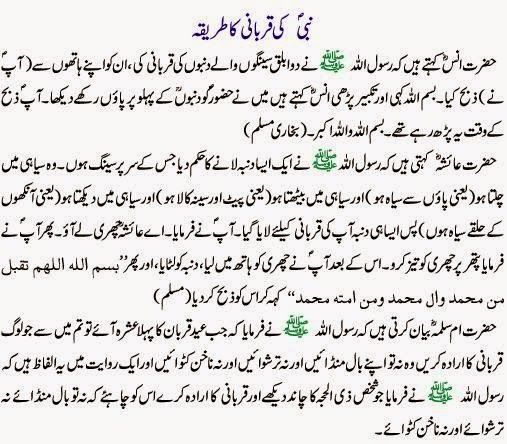 نبیؐ کی قربانی کا طریقہ
حضرت انسؓ کہتے ہیں کہ رسول اللہ ﷺ نے دو ابلق سینگوں والے دنبوں کی قربانی کی، ان کو اپنے ہاتھوں سے (آپؐ
نے) ذبح کیا۔ بسم اللہ کہی اور تکبیر پڑھی انسؓ کہتے ہیں میں نے حضورؐ کو دنبوں کے پہلو پر پاؤں رکھے دیکھا۔ آپؐ ذبح
کے وقت یہ پڑھ رہے تھے۔ بسم اللہ واللہ اکبر۔ (بخاری مسلم)
حضرت عائشہؓ کہتی ہیں کہ رسول اللہ ﷺ نے ایک ایسا دنبہ لانے کا حکم دیا جس کے سر پر سینگ ہوں۔ وہ سیاہی میں
چلتا ہو (یعنی پاؤں سے سیاہ ہو) اور سیاہی میں بیٹھتا ہو (یعنی پیٹ اور سینہ کالا ہو) اور سیاہی میں دیکھتا ہو (یعنی آنکھوں
کے حلقے سیاہ ہوں) پس ایسا ہی دنبہ آپؐ کی قربانی کیلئے لایا گیا۔ آپؐ نے فرمایا۔ اے عائشہؓ چھری لے آؤ۔ پھر آپؐ نے
فرمایا پتھر پر چھری کو تیز کرو۔ اس کے بعد آپؐ نے چھری کو ہاتھ میں لیا، دنبہ کو لٹایا، اور پھر ”بسم الله اللهم تقبل
من محمد وال محمد ومن امته محمد“ کہہ کر اس کو ذبح کر دیا (مسلم)
حضرت ام سلمہؓ بیان کرتی ہیں کہ رسول اللہ ﷺ نے فرمایا کہ جب عید قربان کا پہلا عشرہ آئے تو تم میں سے جو لوگ
قربانی کا ارادہ کریں وہ نہ تو اپنے بال منڈائیں اور نہ ترشوائیں اور نہ ناخن کٹوائیں اور ایک روایت میں یہ الفاظ ہیں کہ
رسول اللہ ﷺ نے فرمایا جو شخص ذی الحجہ کا چاند دیکھے اور قربانی کا ارادہ کرے اس کو چاہئے کہ نہ تو بال منڈائے نہ
ترشوائے اور نہ ناخن کٹوائے۔